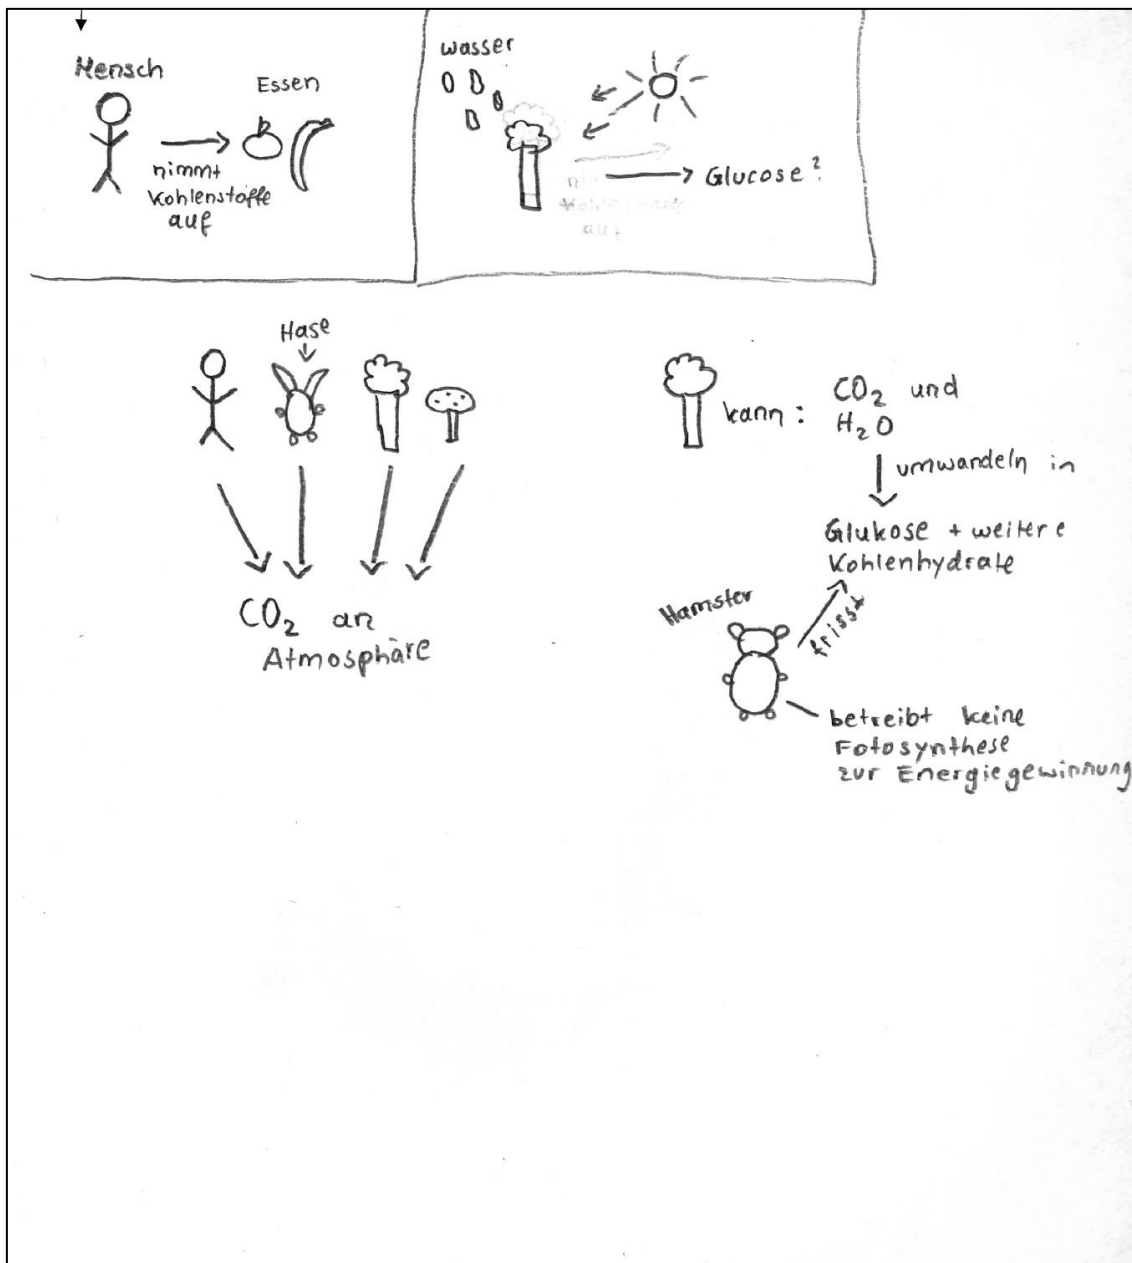 Mensch
Essen
nimmt
Kohlenstoffe
auf
Wasser
Glucose?
Hase
CO₂ an
Atmosphäre
kann: CO₂ und
H₂O
umwandeln in
Glukose + weitere
Kohlenhydrate
Hamster
frisst
betreibt keine
Fotosynthese
zur Energiegewinnung